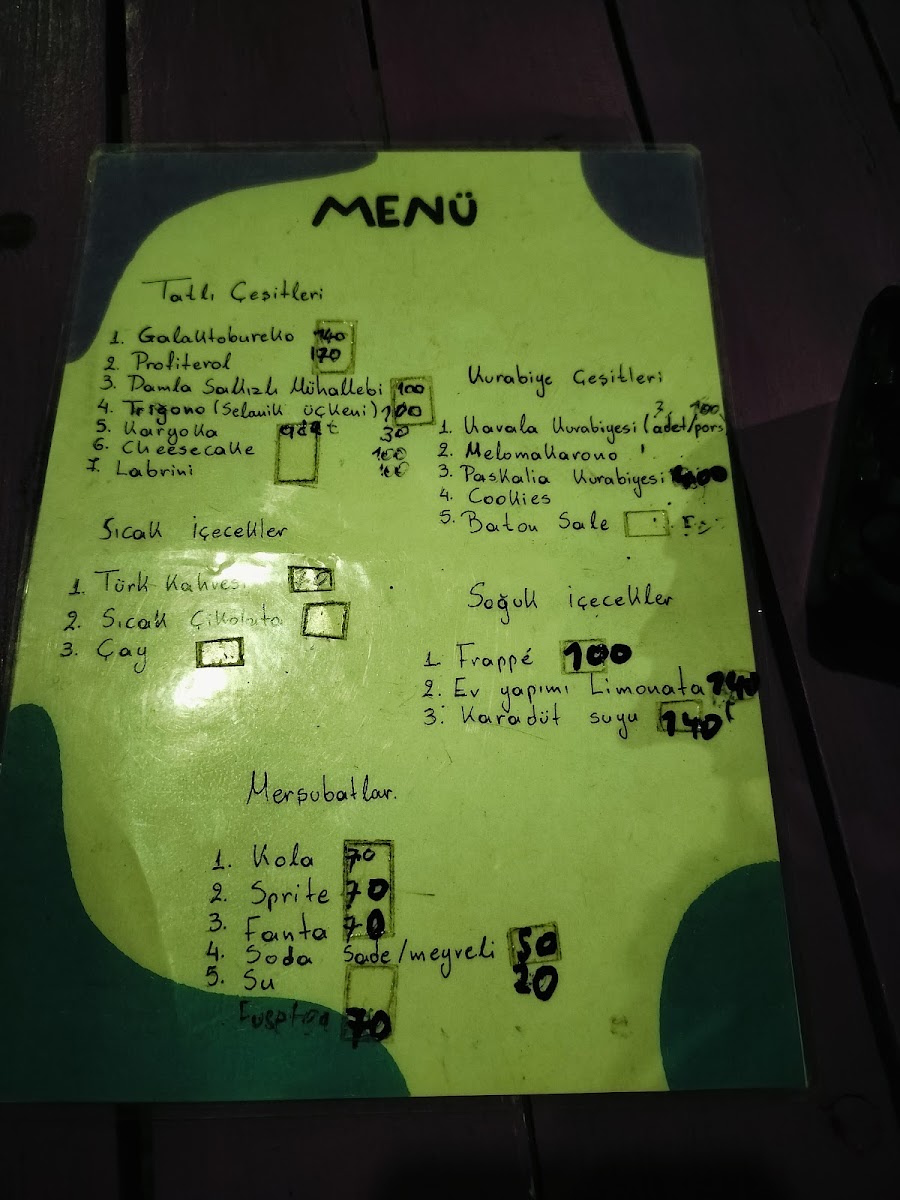 MENÜ
Tatlı Çeşitleri
1. Galaktobureko 140
2. Profiterol 170
3. Damla Sakızlı Mühallebi 100
4. Trigono (Selanik üçkeni) 100
5. Karyoka adet 30
6. Cheesecake 100
7. Labrini 100
Kurabiye Çeşitleri
1. Kavala Kurabiyesi (adet/pors)
2. Melomakarono
3. Paskalia Kurabiyesi
4. Cookies
5. Baton Sale
Sıcak İçecekler
1. Türk Kahvesi
2. Sıcak Çikolata
3. Çay
Soğuk İçecekler
1. Frappé 100
2. Ev yapımı Limonata 140
3. Karadüt suyu 140
Merşubatlar.
1. Kola 70
2. Sprite 70
3. Fanta 70
4. Soda Sade/meyveli 50
5. Su 20
70